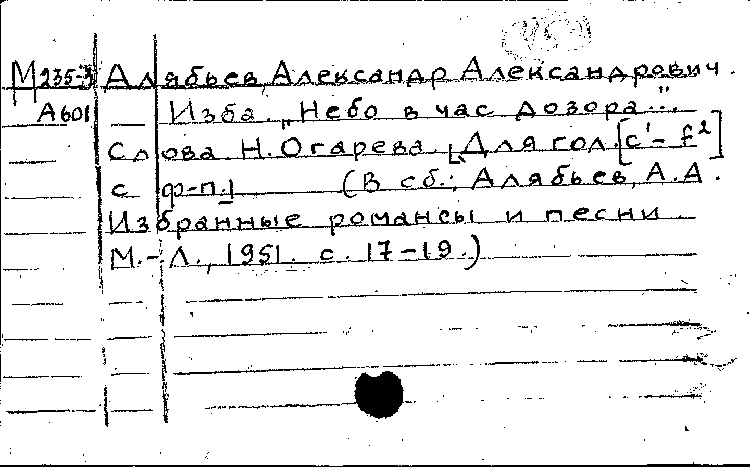 М235-3 Алябьев, Александр Александрович.
А601 — Изба. „Небо в час дозора...".
Слова Н. Огарева. [Для гол. [c¹ – f²]
с ф-п.] (В сб.: Алябьев, А.А.
Избранные романсы и песни
М.-Л., 1951. с. 17-19.)